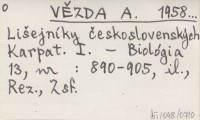 o
VĚZDA A. 1958...
Lišejníky československých
Karpat. I. – Biológia
13, nr : 890-905, il.,
Rez., Zsf.